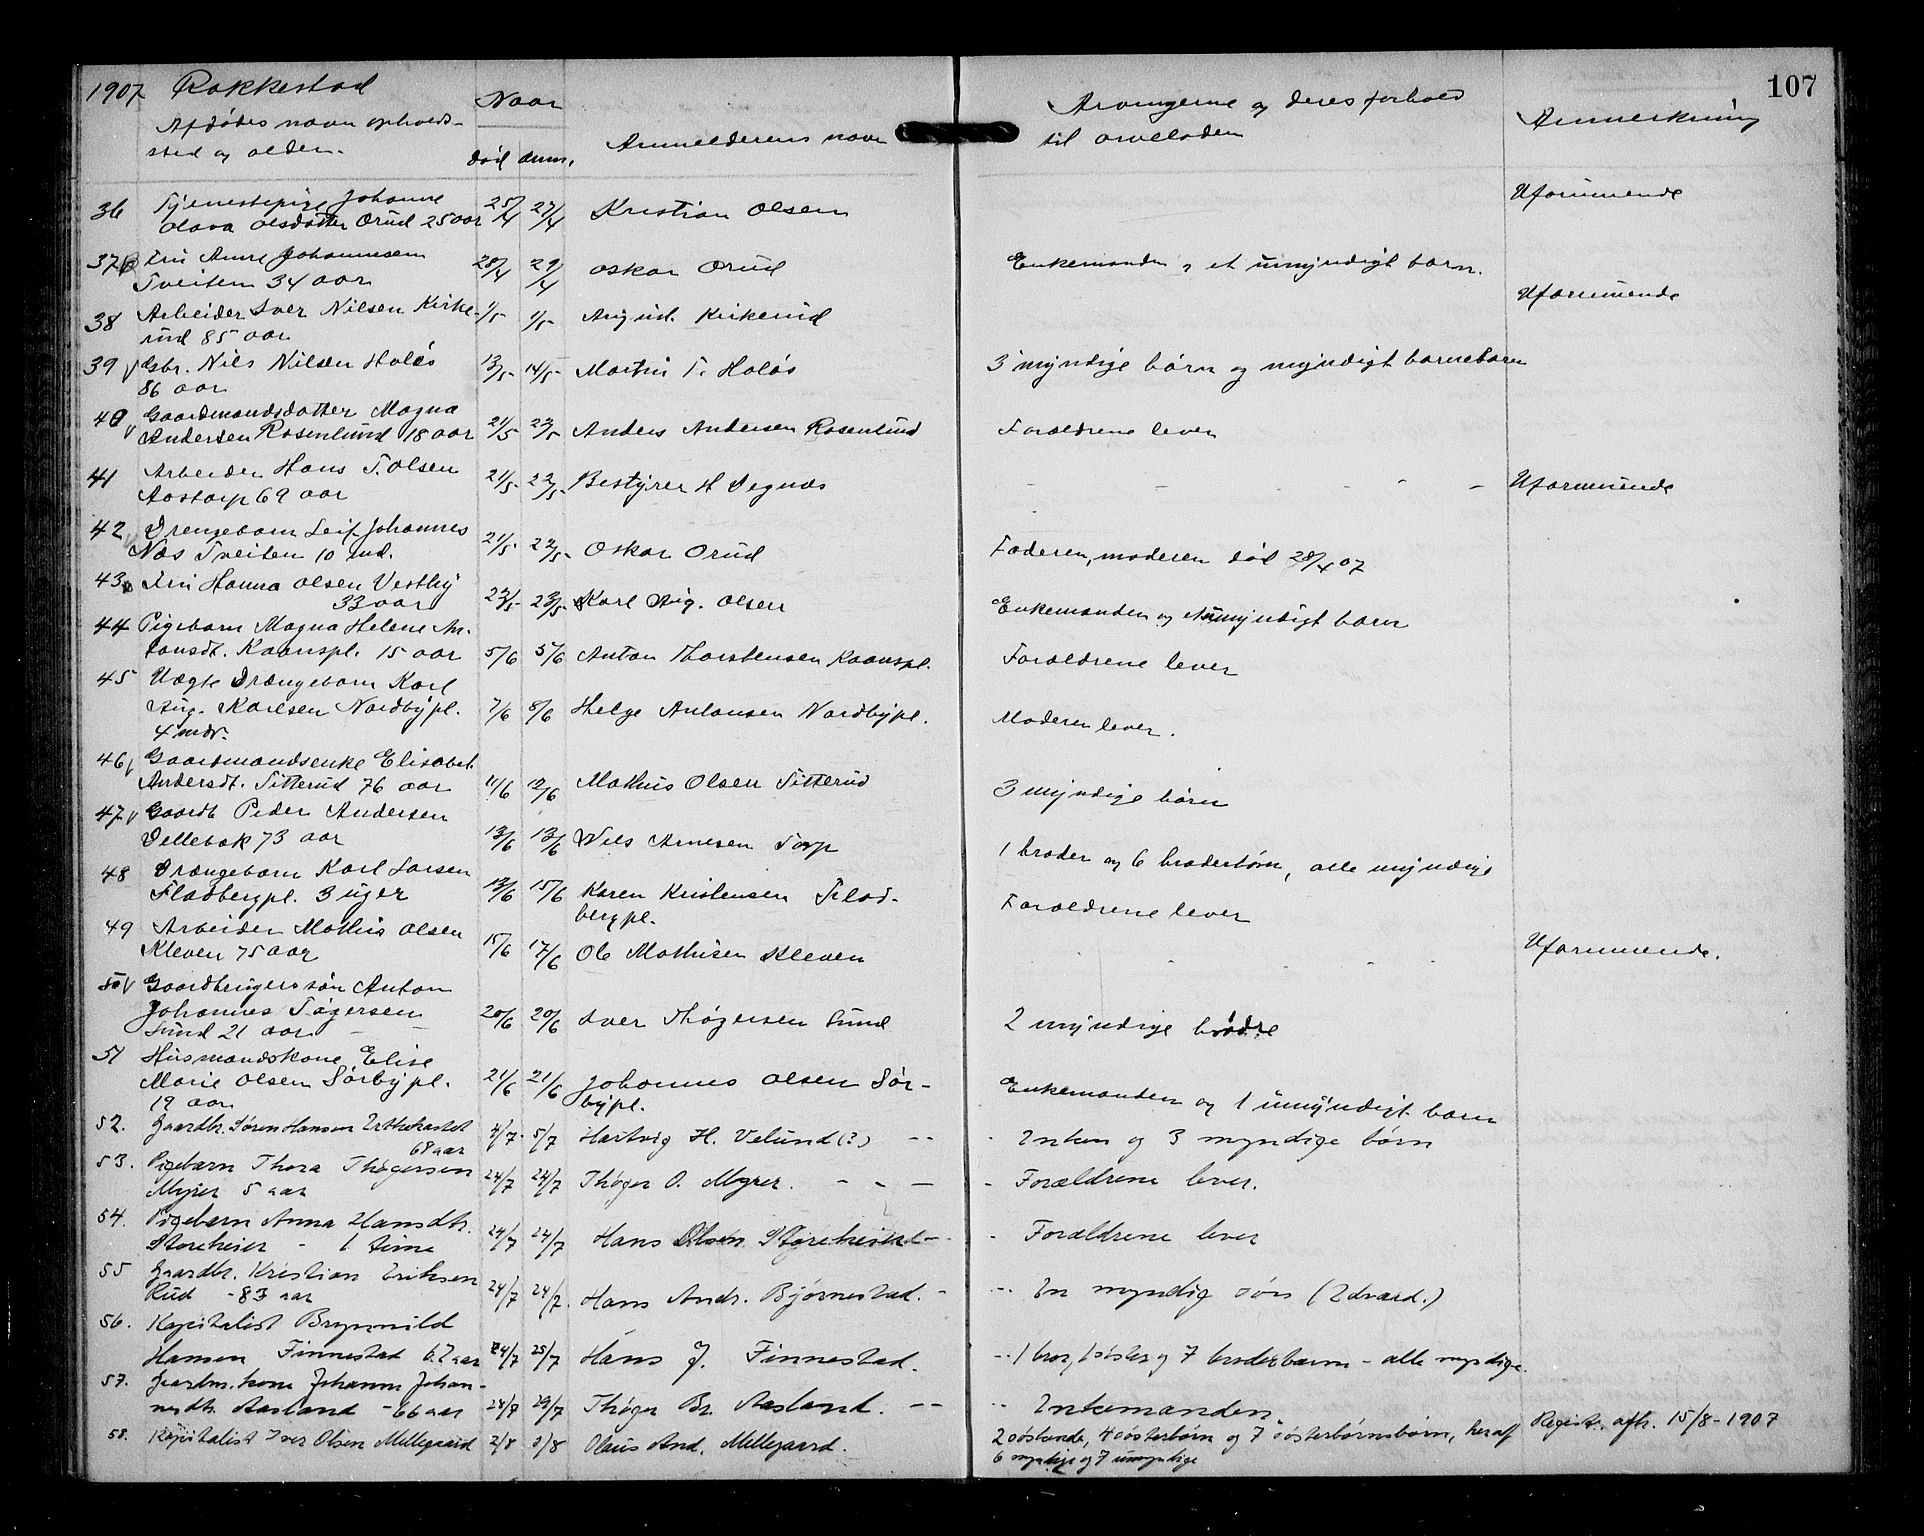 1907 Rakkestad
Afdødes navn opholds-
sted og alder.
Naar
død anm.
Anmelderens navn
Arvingerne og deres forhold
til arveladen
Anmerkning
107
36 Tjenestepige Johanne
Olava Olsdatter Orud 25 aar 25/4 27/4 Kristian Olsen
Uformuende
37 Fru Anne Johannesen
Tveiten 34 aar 28/4 29/4 Oskar Orud Enkemanden og et umyndigt barn.
38 Arbeider Iver Nilsen Kirke-
rud 85 aar 1/5 1/5 August Kirkerud Uformuende
39 Gbr. Nils Nilsen Holøs
86 aar 13/5 14/5 Martin T. Holøs 3 myndige børn og myndigt barnebarn
40 Gaardmandsdatter Magna
Andersen Rosenlund 18 aar 21/5 22/5 Anders Andersen Rosenlund Forældrene lever
41 Arbeider Hans T. Olsen
Aastorp 69 aar 21/5 22/5 Bestyrer H Degnæs - - - - - Uformuende
42 Drengebarn Leif Johannes
Næs Tveiten 10 md. 21/5 22/5 Oskar Orud Faderen, moderen død 28/4 07
43 Fru Hanna Olsen Vestby
33 aar 22/5 23/5 Karl Aug. Olsen Enkemanden og et umyndigt barn
44 Pigebarn Magna Helene An-
tonsdt. Kaanspl. 15 aar 5/6 5/6 Anton Thorstensen Kaanspl. Forældrene lever
45 Uægte Drængebarn Karl
Aug. Karlsen Nordbypl.
4 mdr. 7/6 8/6 Helge Antonsen Nordbypl. Moderen lever.
46 Gaardmandsenke Elisabet
Andersdt. Titterud 76 aar 11/6 12/6 Mathis Olsen Titterud 3 myndige børn
47 Gaardb Peder Andersen
Dellebæk 73 aar 13/6 13/6 Nils Arnesen Torp 1 broder og 6 broderbørn, alle myndige
48 Drængebarn Karl Larsen
Fladbergpl. 3 uger 13/6 15/6 Karen Kristensen Flad-
bergpl. Forældrene lever
49 Arbeider Mathis Olsen
Kleven 75 aar 15/6 17/6 Ole Mathisen Kleven Uformuende.
50 Gaardbrugers søn Anton
Johannes Tøgersen
Lund 21 aar 20/6 20/6 Iver Thøgersen Lund 2 myndige brødre
51 Husmandskone Elise
Marie Olsen Sørbypl.
19 aar 21/6 21/6 Johannes Olsen Sør-
bypl. Enkemanden og 1 umyndigt barn
52. Gaardbr. Søren Hansen Ertehestad
68 aar 4/7 5/7 Hartvig H. Velund (?) -- - Enken og 3 myndige børn
53. Pigebarn Thora Thøgersen
Myrer 5 aar 24/7 24/7 Thøger O. Myrer. - - - - Forældrene lever.
54. Pigebarn Anna Hansdtr.
Storeheier - 1 time 24/7 24/7 Hans Olsen Storeheier - - Forældrene lever
55 Gaardbr. Kristian Eriksen
Rud - 83 aar 24/7 24/7. Hans Andr. Bjørnestad. - -- En myndig søn (Edvard.)
56. Kapitalist Brynnild
Hansen Finnestad 67 aar 24/7 25/7 Hans J. Finnestad. -- 1 bror, 1 søster og 7 broderbørn - alle myndige.
57. Gaardm. kone Johanne Johan-
nesdtr. Aasland - 66 aar 28/7 29/7 Thøger Br. Aasland. -- -- Enkemanden
58. Kapitalist Iver Olsen Millegaard 2/8 3/8 Olaus And. Millegaard. 2 søskende, 4 søsterbørn og 7 søsterbørnsbørn, heraf
6 myndige og 7 umyndige
Registr. afh. 15/8-1907